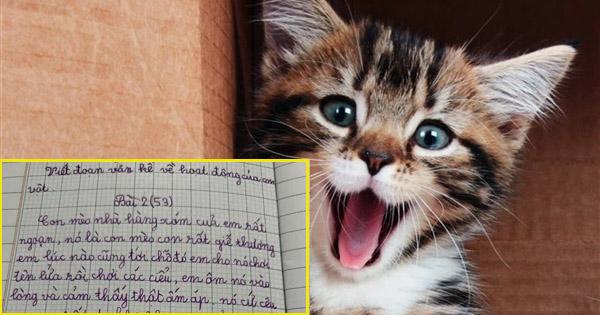 Viết đoạn văn kể về hoạt động của con
vật
Bài 2 (53)
Con mèo nhà hàng xóm cực em rất
ngoạn, nó là con mèo con rất giễ thương
em lúc nào cũng tới chỗ đó em cho nó chơi
tên lửa rồi chơi các kiểu, em ôm nó vào
lòng và cảm thấy thật ấm áp, nó cứ kêu